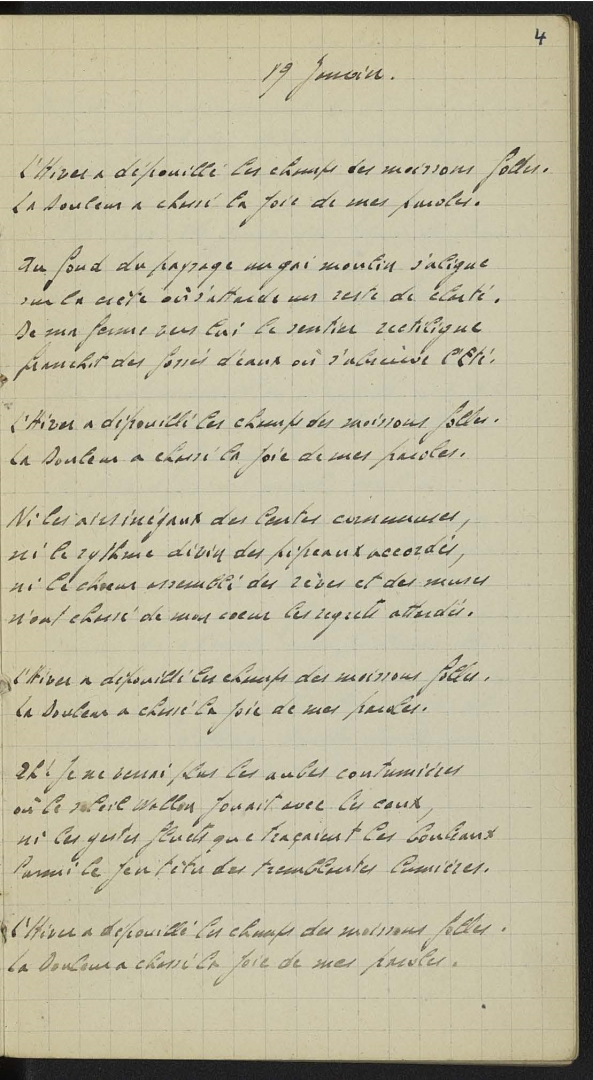 4
19 Janvier.
L'Hiver a dépouillé les champs des moissons folles.
La Douleur a chassé la joie de mes paroles.
Au fond du paysage un gai moulin s'aligne
sur la crête où s'attarde un reste de clarté.
De ma ferme vers lui le sentier rectiligne
franchit des fossés d'eaux où s'abreuve l'Eté.
L'Hiver a dépouillé les champs des moissons folles.
La Douleur a chassé la joie de mes paroles.
Ni les airs inégaux des lentes cornemuses,
ni le rythme divin des pipeaux accordés,
ni le chœur assemblé des rêves et des muses
n'ont chassé de mon coeur les regrets attardés.
L'Hiver a dépouillé les champs des moissons folles.
La Douleur a chassé la joie de mes paroles.
Ah! je ne verrai plus les aubes coutumières
où le soleil Wallon jouait avec les eaux,
ni les gestes fluets que traçaient les bouleaux
parmi le jeu têtu des tremblantes lumières.
L'Hiver a dépouillé les champs des moissons folles.
La Douleur a chassé la joie de mes paroles.